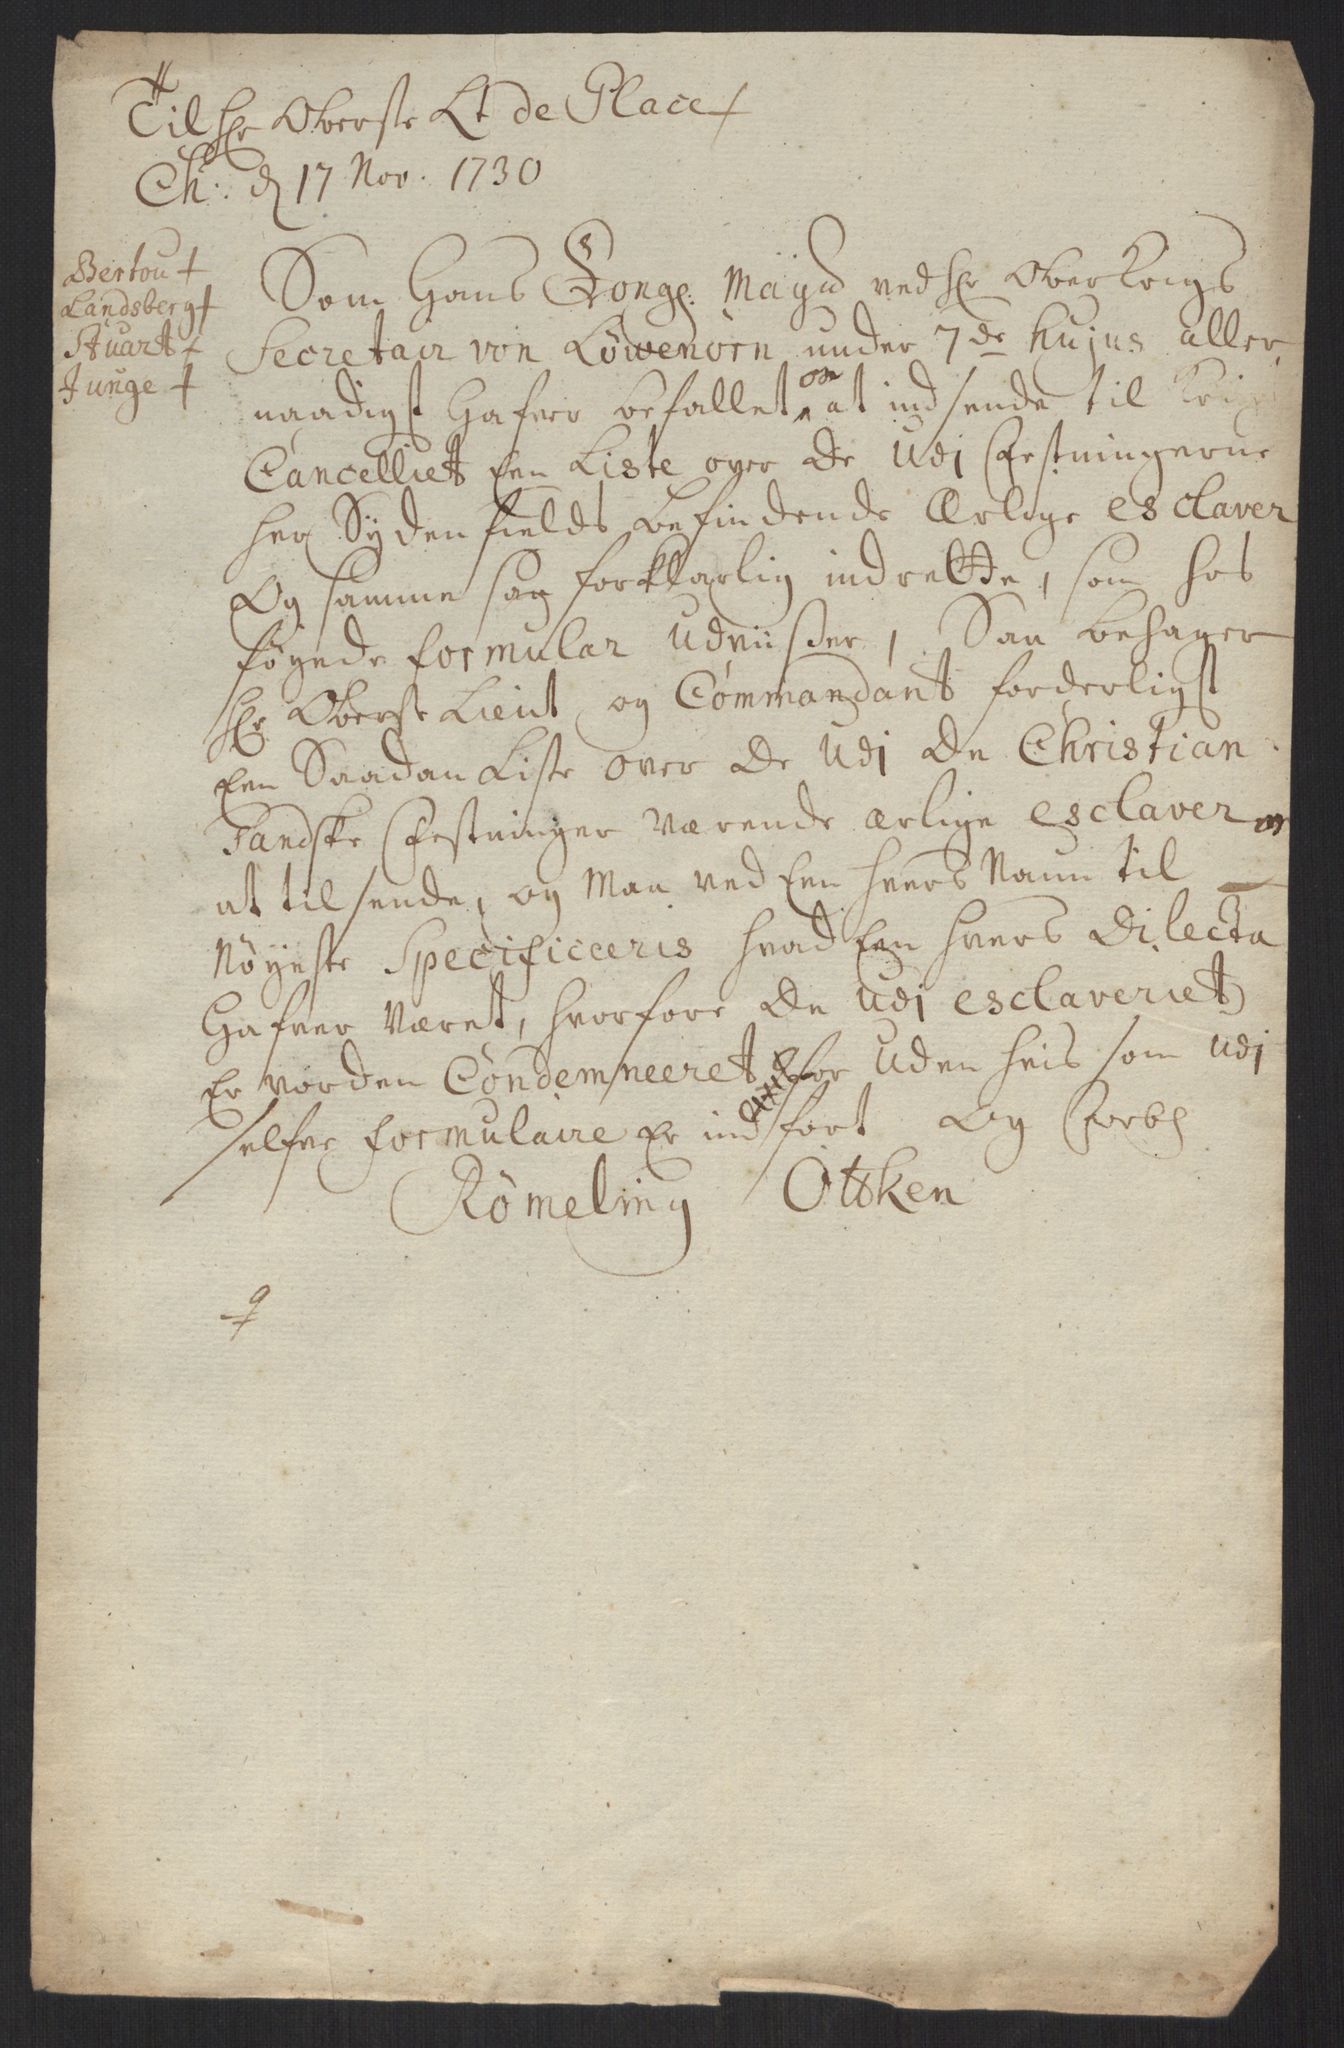 Til Hr Oberste Lt de Place
Ch: d 17 Nov. 1730
Bertou
Landsberg
Stuart
Junge
Som Hans Kongl: Mayt ved Hr Ober Krigs
Secretair von Löwenörn under 7de hujus aller
naadigst hafver befallet os at indsende til Krigs
Cancelliet Een Liste over De Udj Festningerne
her Sydenfields befindende Ærlige esclaver
Og samme saa forklarlig indrette, som hos
føyede formular Udviisser, Saa behager
Hr Oberste Lieut og Commandant forderligst
Een Saadan Liste over De Udj De Christian
Sandske Festninger Værende ærlige esclaver os
at tilsende, og Maa ved Een hvers Naun til
Nöyeste Specificeeris hvad Een hvers Dilecta
Hafver Været, hvorfore De Udj esclaveriet
Er vorden Condemneeret for Uden heis som Udj
selfve formulaire Er indfört Og Forbl
Römeling Otsken